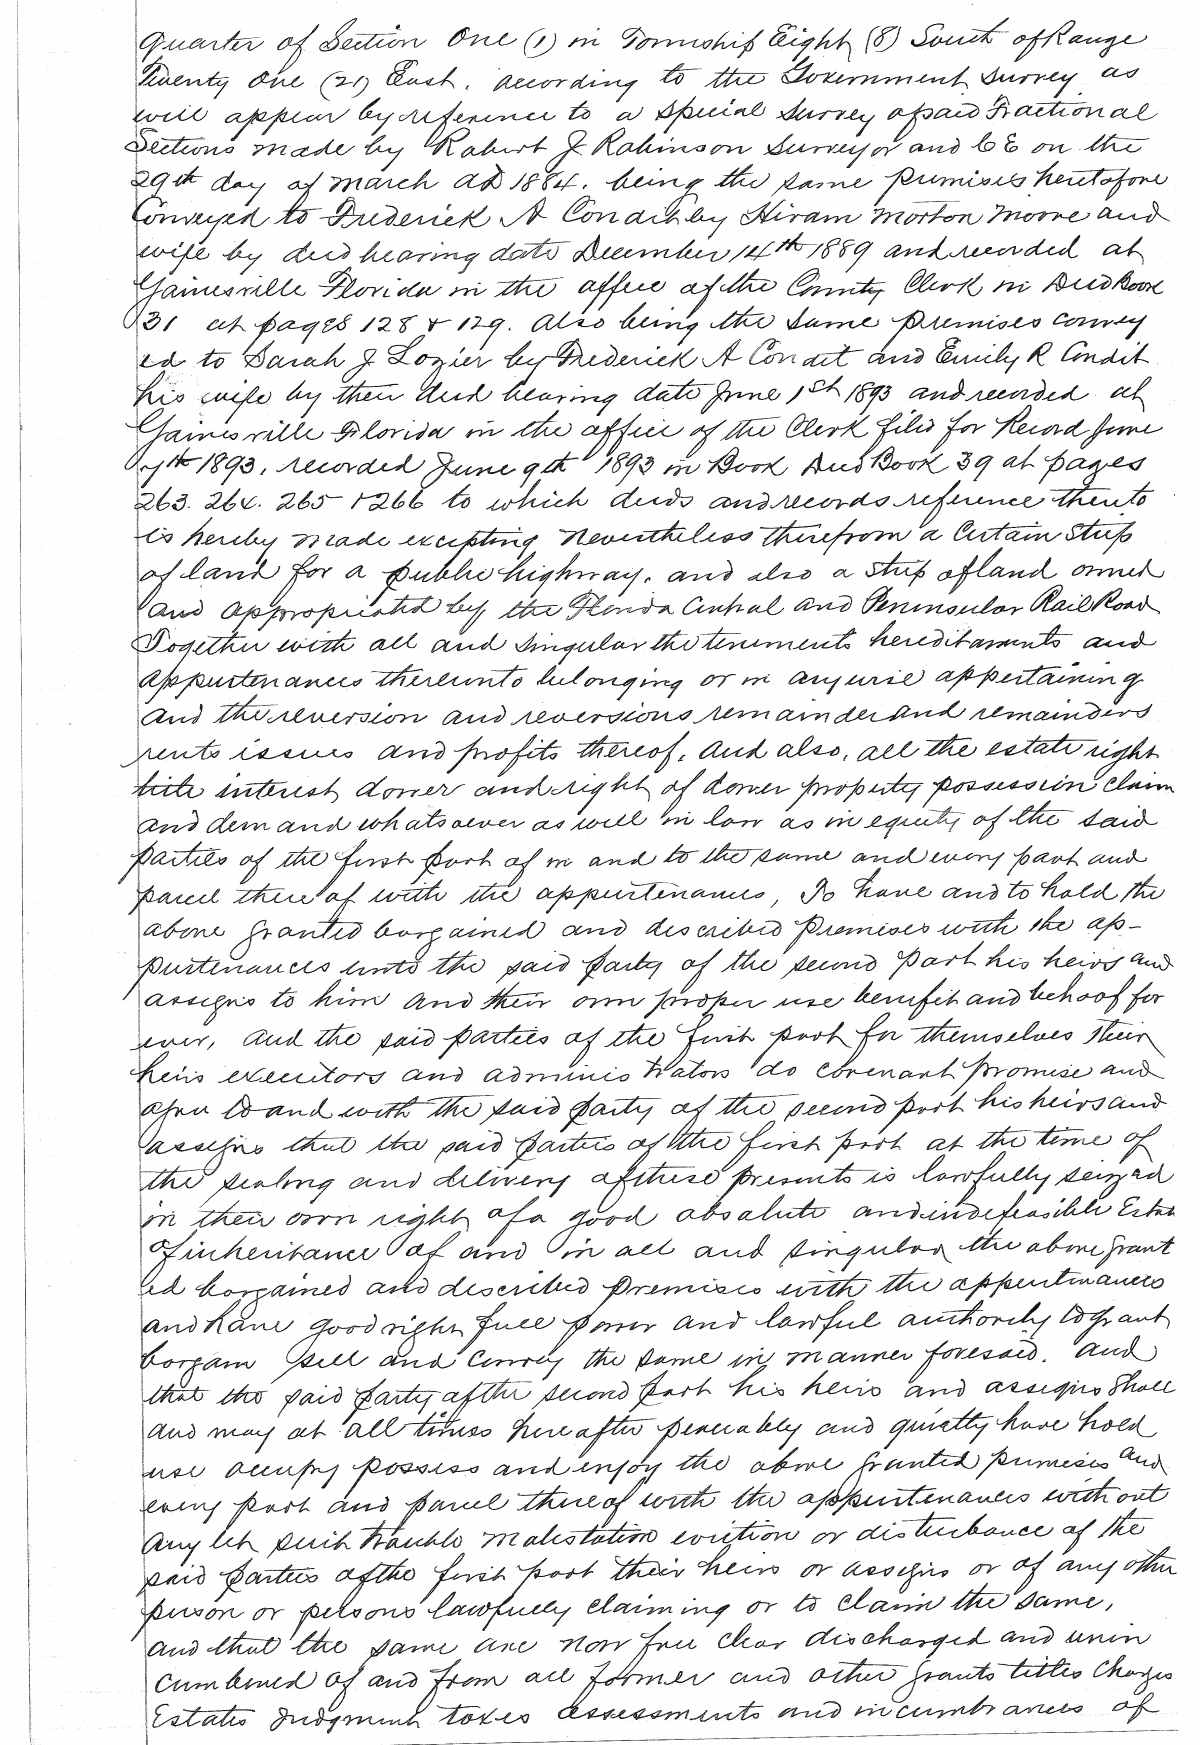 quarter of Section One (1) in Township Eight (8) South of Range
Twenty One (21) East. according to the Government Survey as
will appear by reference to a special Survey of said Fractional
Sections made by Robert J Robinson Surveyor and CE on the
29th day of March AD 1884. being the same premises heretofore
Conveyed to Frederick A Condit by Hiram Morton Moore and
wife by deed bearing date December 14th 1889 and recorded at
Gainesville Florida in the office of the County Clerk in Deed Book
31 at pages 128 & 129. Also being the same premises convey
ed to Sarah J Lozier by Frederick A Condit and Emily R Condit
his wife by their deed bearing date June 1st 1893 and recorded at
Gainesville Florida in the office of the Clerk filed for Record June
7th 1893, recorded June 9th 1893 in Book Deed Book 39 at pages
263. 264. 265 & 266 to which deeds and records reference thereto
is hereby made excepting nevertheless therefrom a Certain Strip
of land for a public highway. and also a strip of land owned
and appropriated by the Florida Central and Peninsular Rail Road
Together with all and singular the tenements hereditaments and
appurtenances thereunto belonging or in anywise appertaining
And the reversion and reversions remainder and remainders
rents issues and profits thereof. And also, all the estate right
title interest dower and right of dower property possession claim
and demand whatsoever as well in law as in equity of the said
parties of the first part of in and to the same and every part and
parcel there of with the appurtenances, To have and to hold the
above granted bargained and described premises with the ap-
purtenances unto the said party of the second part his heirs and
assigns to him and their own proper use benefit and behoof for
ever, And the said parties of the first part for themselves their
heirs executors and administrators do covenant promise and
agree to and with the said party of the second part his heirs and
assigns that the said parties of the first part at the time of
the sealing and delivery of these presents is lawfully seized
in their own right of a good absolute and indefeasible Estate
Of inheritance of and in all and singular the above grant
ed bargained and described premises with the appurtenances
and have good right full power and lawful authority to grant
bargain sell and convey the same in manner foresaid. And
that the said party of the second part his heirs and assigns shall
and may at all times hereafter peaceably and quietly have hold
use occupy possess and enjoy the above granted premises and
every part and parcel thereof with the appurtenances without
any let suit trouble molestation eviction or disturbance of the
said parties of the first part their heirs or assigns or of any other
person or persons lawfully claiming or to claim the same,
and that the same are now free clear discharged and unin
cumbered of and from all former and other grants titles charges
Estates Judgments taxes assessments and incumbrances of